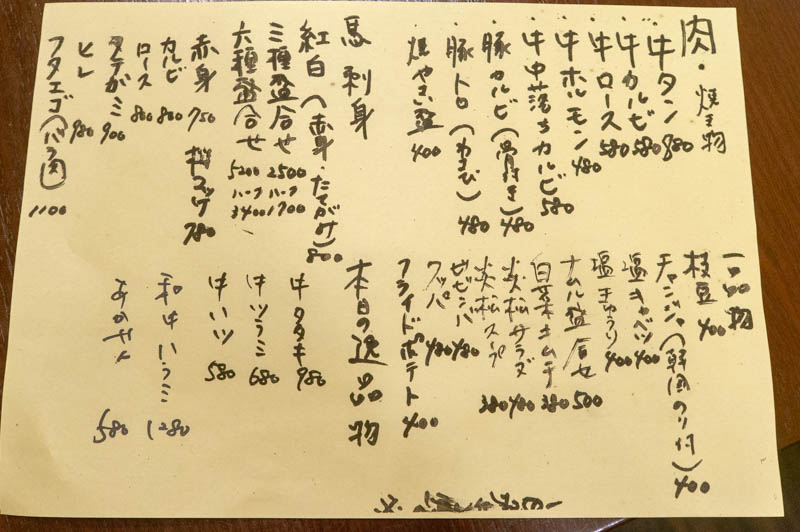 肉・焼き物
牛タン 980
牛カルビ 580
牛ロース 580
牛ホルモン 480
牛中落ちカルビ 580
豚カルビ(骨付き) 480
豚トロ(わさび) 480
焼やさい盛 400
馬刺身
紅白(赤身・たてがみ) 800
三種盛合せ 2500
ハーフ 1700
六種盛合せ 5200
ハーフ 3400
赤身 750
桜ユッケ 780
カルビ 800
ロース 800
タテガミ 900
ヒレ 980
フタエゴ(バラ肉) 1100
一品物
枝豆 400
チャンジャ(韓国のり付) 400
塩キャベツ 400
塩きゅうり 400
ナムル盛合せ 500
白菜キムチ 380
炎松サラダ 400
炎松スープ 380
ビビンバ 480
クッパ 480
フライドポテト 400
本日の逸品物
牛タタキ 980
牛ツラミ 680
牛ハツ 580
和牛 1280
580